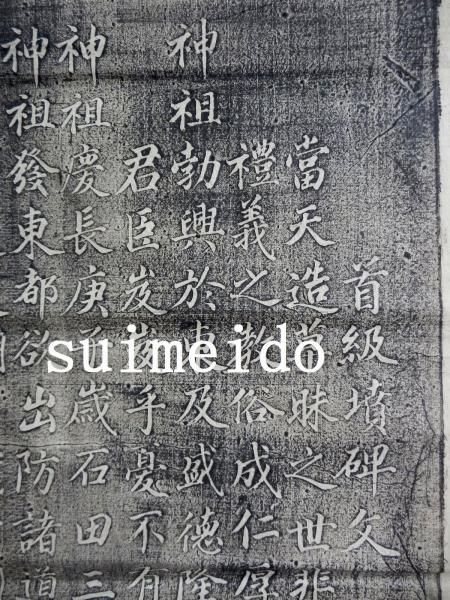 首級墳碑文
當天造草昧之世非
禮義之敦俗成仁厚
神祖勃興於東及盛德隆
君臣岌岌乎憂不有
神祖慶長庚子歲石田三
神祖發東都欲出防諸道
suimeido